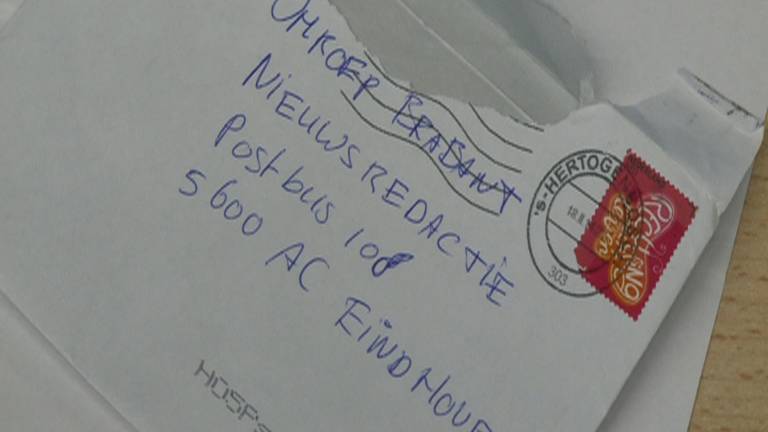 OMROEP BRABANT
NIEUWSREDACTIE
Postbus 108
5600 AC EiNDHOVE
's-HERTOGENBOSCH
303
HOSPS